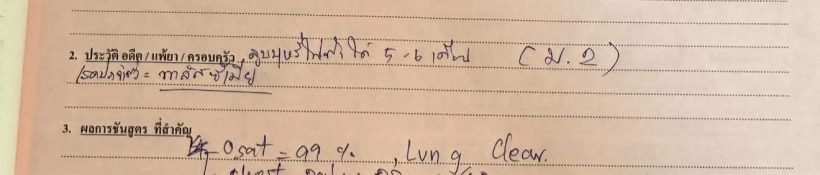 2. ประวัติ อดีต / แพ้ยา / ครอบครัว สูบบุหรี่ไฟฟ้าได้ 5-6 เดือน (ม. 2)
โรคประจำตัว = ทาลัสซีเมีย
3. ผลการชันสูตร ที่สำคัญ
O2sat = 99 % , Lung Clear.